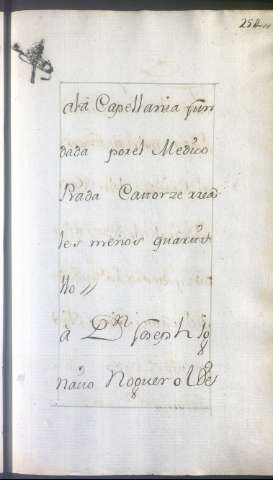 254
ala Capellania fun
dada porel Medico
Prada Catorze rrea
les menos quarti
llo //
à Dn Joseph Ig
nacio Noguerol Des